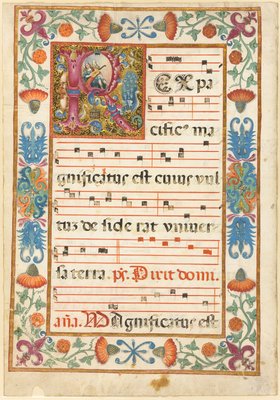 REX pa
cific᛫ ma
gnificatus est cuius vul
tuz de side rat univer
sa terra. ps. Dixit domi.
aña. Magnificatus est